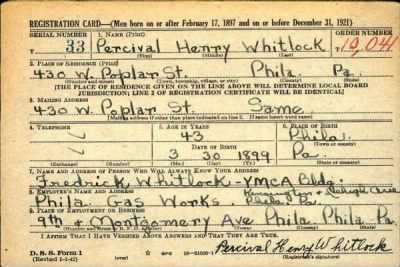 REGISTRATION CARD—(Men born on or after February 17, 1897 and on or before December 31, 1921)
SERIAL NUMBER 1. NAME (Print) ORDER NUMBER
T 33 Percival Henry Whitlock 19,041
(First) (Middle) (Last)
2. PLACE OF RESIDENCE (Print)
430 W. Poplar St. Phila. Pa.
(Number and street) (Town, township, village, or city) (County) (State)
[THE PLACE OF RESIDENCE GIVEN ON THE LINE ABOVE WILL DETERMINE LOCAL BOARD
JURISDICTION; LINE 2 OF REGISTRATION CERTIFICATE WILL BE IDENTICAL]
3. MAILING ADDRESS
430 W. Poplar St. Same
[Mailing address if other than place indicated on line 2. If same insert word same]
4. TELEPHONE 5. AGE IN YEARS 6. PLACE OF BIRTH
43 Phila.
DATE OF BIRTH (Town or county)
3 30 1899 Pa.
(Exchange) (Number) (Mo.) (Day) (Yr.) (State or country)
7. NAME AND ADDRESS OF PERSON WHO WILL ALWAYS KNOW YOUR ADDRESS
Fredrick Whitlock - YMCA Bldg.
8. EMPLOYER'S NAME AND ADDRESS Kensington + Lehigh Ave
Phila. Gas Works Phila Pa.
9. PLACE OF EMPLOYMENT OR BUSINESS
9th + Montgomery Ave Phila. Phila Pa.
(Number and street or R. F. D. number) (Town) (County) (State)
I AFFIRM THAT I HAVE VERIFIED ABOVE ANSWERS AND THAT THEY ARE TRUE.
D. S. S. Form 1
(Revised 1-1-42) Percival Henry Whitlock